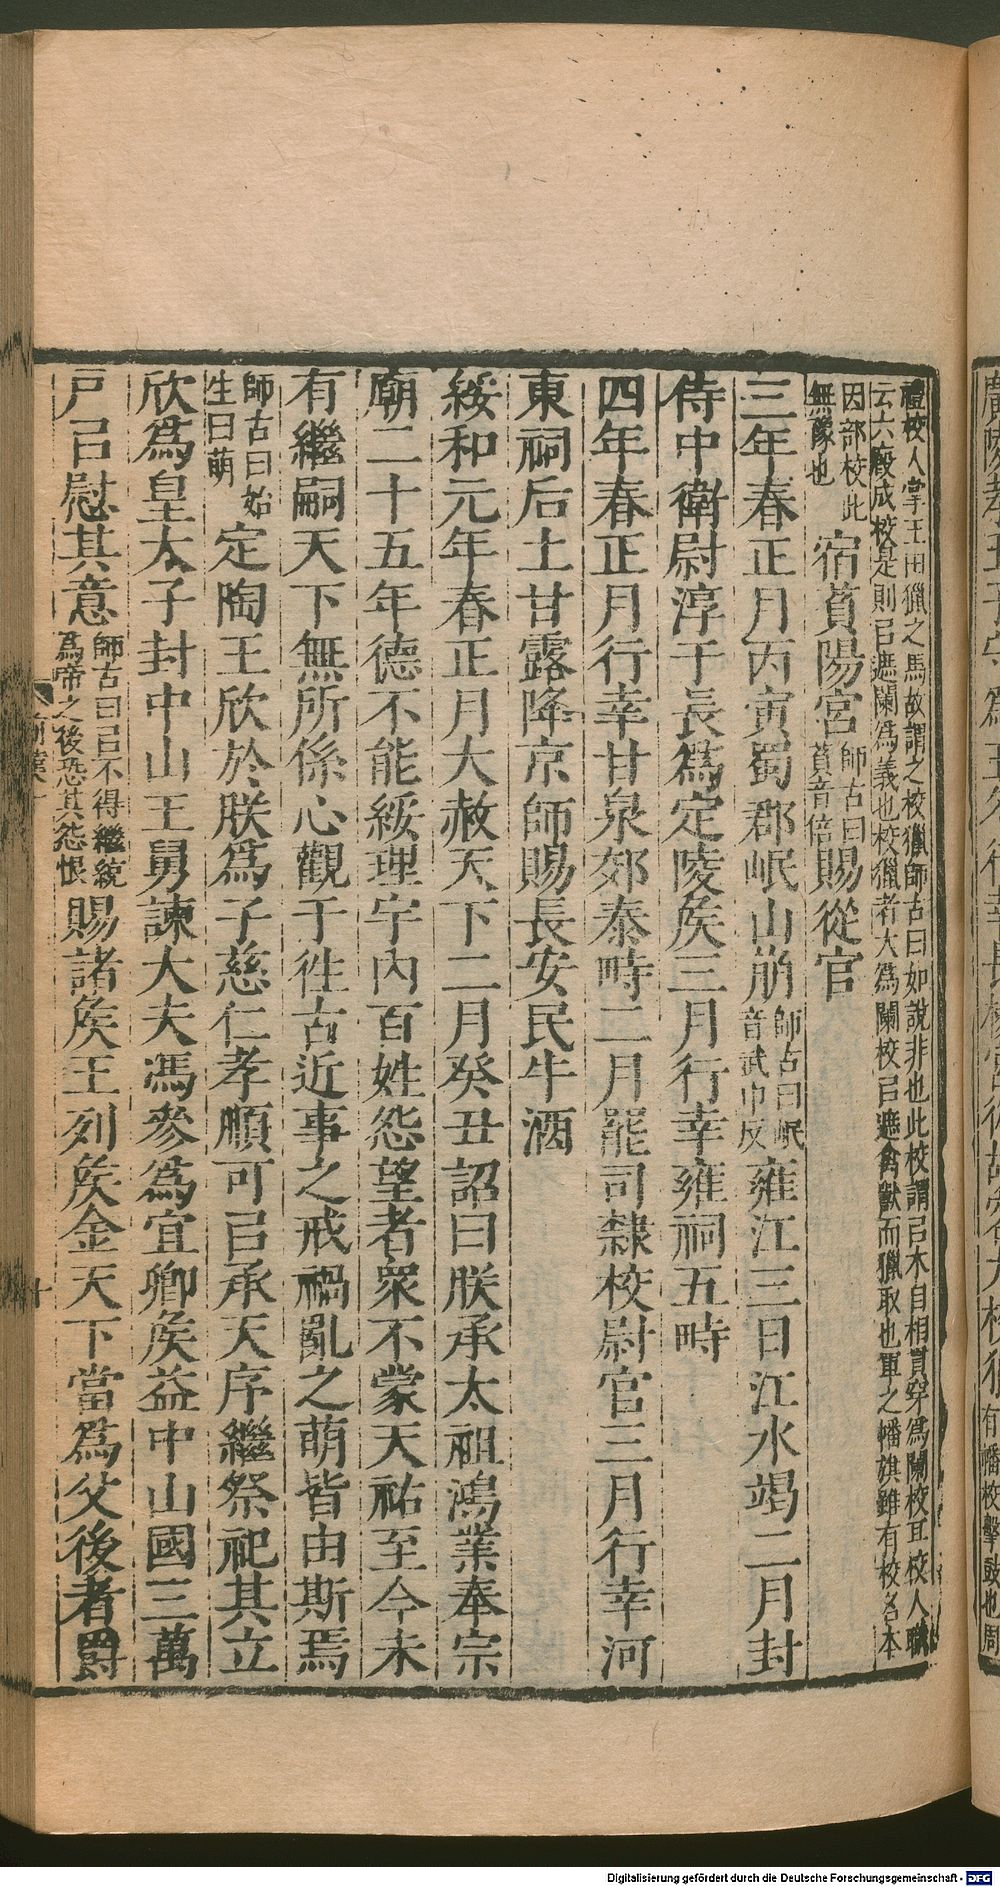 禮校人掌王田獵之馬故謂之校獵師古曰如說非也此校謂㠯木自相貫穿爲闌校耳校人職
云六廄成校是則㠯遮闌爲義也校獵者大爲闌校㠯遮禽獸而獵取也軍之幡旗雖有校名本
因部校此
無豫也
宿萯陽宮師古曰萯音倍賜從官
三年春正月丙寅蜀郡岷山崩師古曰岷音武巾反雍江三日江水竭二月封
侍中衛尉淳于長爲定陵矦三月行幸雍祠五畤
四年春正月行幸甘泉郊泰畤二月罷司隸校尉官三月行幸河
東祠后土甘露降京師賜長安民牛酒
綏和元年春正月大赦天下二月癸丑詔曰朕承太祖鴻業奉宗
廟二十五年德不能綏理宇內百姓怨望者衆不蒙天祐至今未
有繼嗣天下無所係心觀于往古近事之戒禍亂之萌皆由斯焉
師古曰始生曰萌定陶王欣於朕爲子慈仁孝順可㠯承天序繼祭祀其立
欣爲皇太子封中山王舅諫大夫馮參爲宜鄉矦益中山國三萬
戶㠯慰其意師古曰㠯不得繼統爲帝之後恐其怨恨賜諸矦王列矦金天下當爲父後者爵
Digitalisierung gefördert durch die Deutsche Forschungsgemeinschaft - DFG